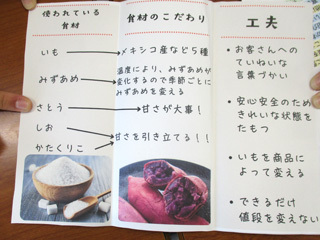 使われている
食材
いも
みずあめ
さとう
しお
かたくりこ
食材のこだわり
メキシコ産など5種
温度により、みずあめが
変化するので季節ごとに
みずあめを変える
甘さが大事！
甘さを引き立てる！！
工夫
• お客さんへの
ていねいな
言葉づかい
• 安心安全のため
きれいな状態を
たもつ
• いもを商品に
よって変える
• できるだけ
値段を変えない